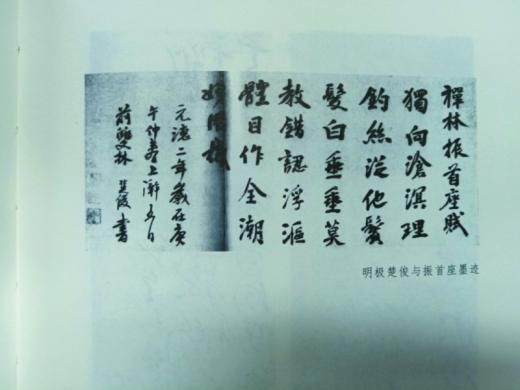 禪林振首座賦
獨向滄溟理
釣絲從他鬢
髮白垂垂莫
教錯認浮漚
體目作全潮
元德二年歲在庚
午仲春上澣五日
雙林 楚俊 書
明极楚俊与振首座墨迹